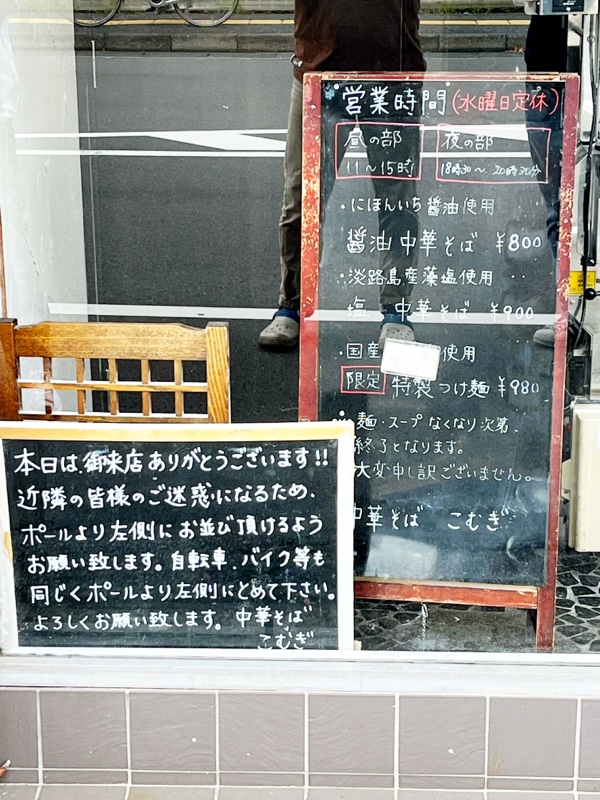 営業時間(水曜日定休)
昼の部 夜の部
11～15時 18時30～20時30分
・にほんいち醤油使用
醤油中華そば ¥800
・淡路島産藻塩使用
塩、中華そば ¥900
・国産 使用
限定 特製つけ麺 ¥980
麺・スープなくなり次第、
終了となります。
大変申し訳ございません。
中華そば こむぎ
本日は、御来店ありがとうございます!!
近隣の皆様のご迷惑になるため、
ポールより左側にお並び頂けるよう
お願い致します。自転車、バイク等も
同じくポールより左側にとめて下さい。
よろしくお願い致します。中華そば
こむぎ